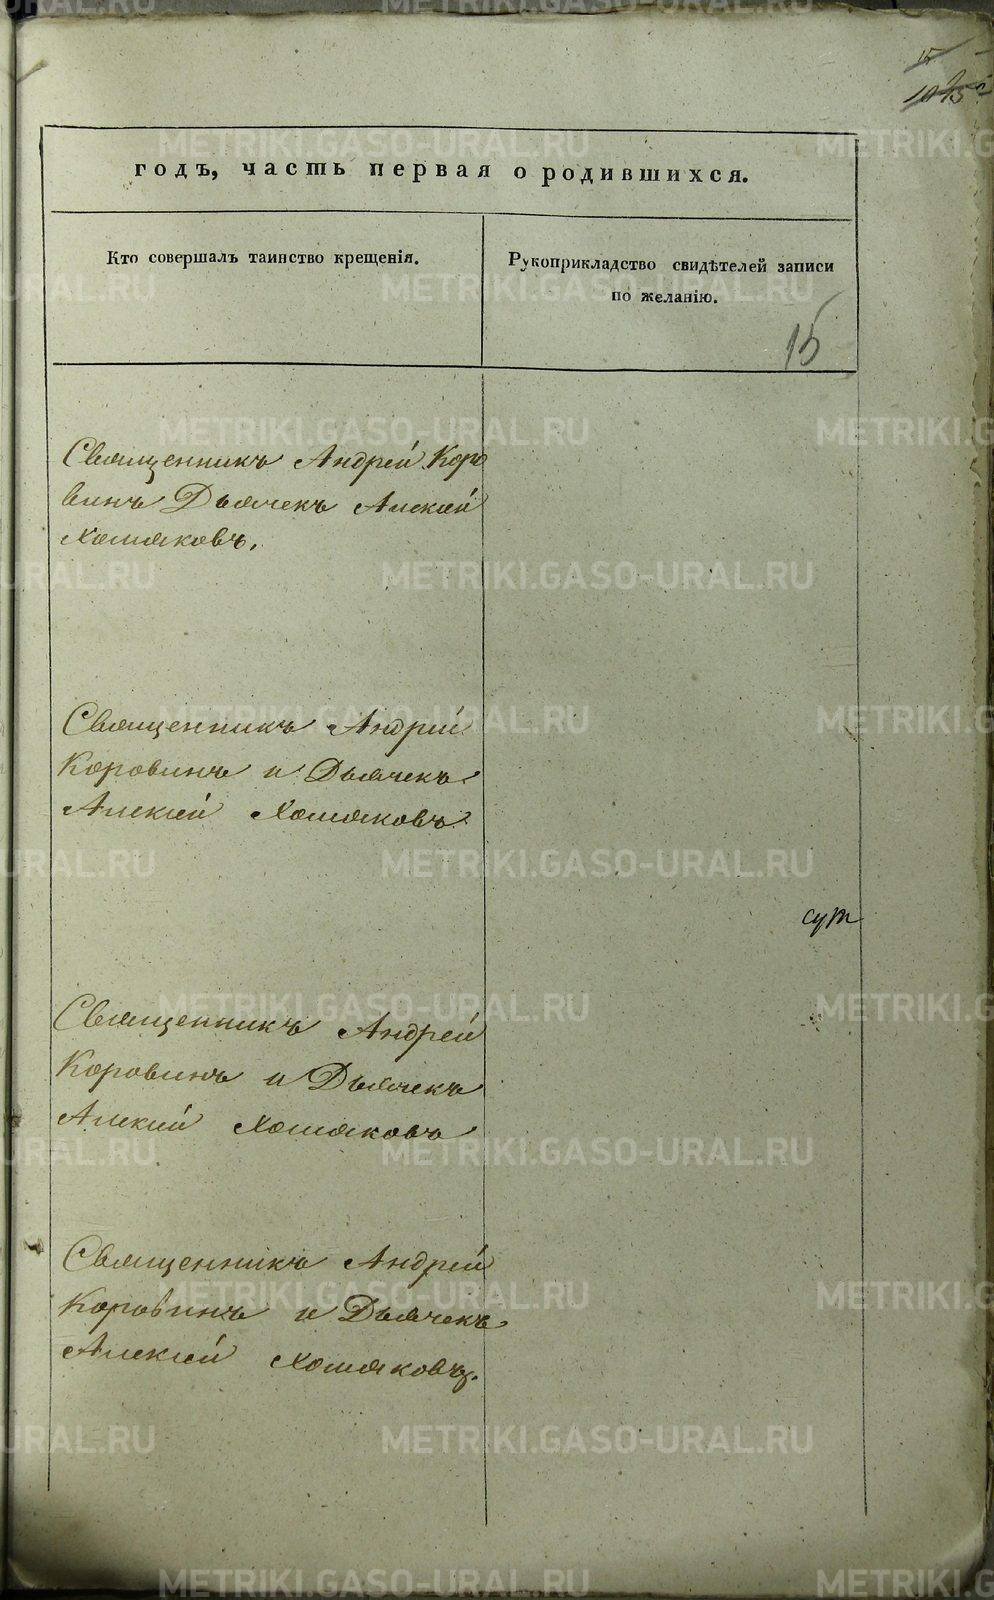 годъ, часть первая о родившихся.
Кто совершалъ таинство крещенія.
Рукоприкладство свидѣтелей записи
по желанію.
15
Священникъ Андрей Коро
винъ Дьячекъ Алексій
Хомяковъ.
Священникъ Андрей
Коровинъ и Дьячекъ
Алексій Хомяковъ.
Священникъ Андрей
Коровинъ и Дьячекъ
Алексій Хомяковъ
Священникъ Андрей
Коровинъ и Дьячекъ
Алексій Хомяковъ.
METRIKI.GASO-URAL.RU